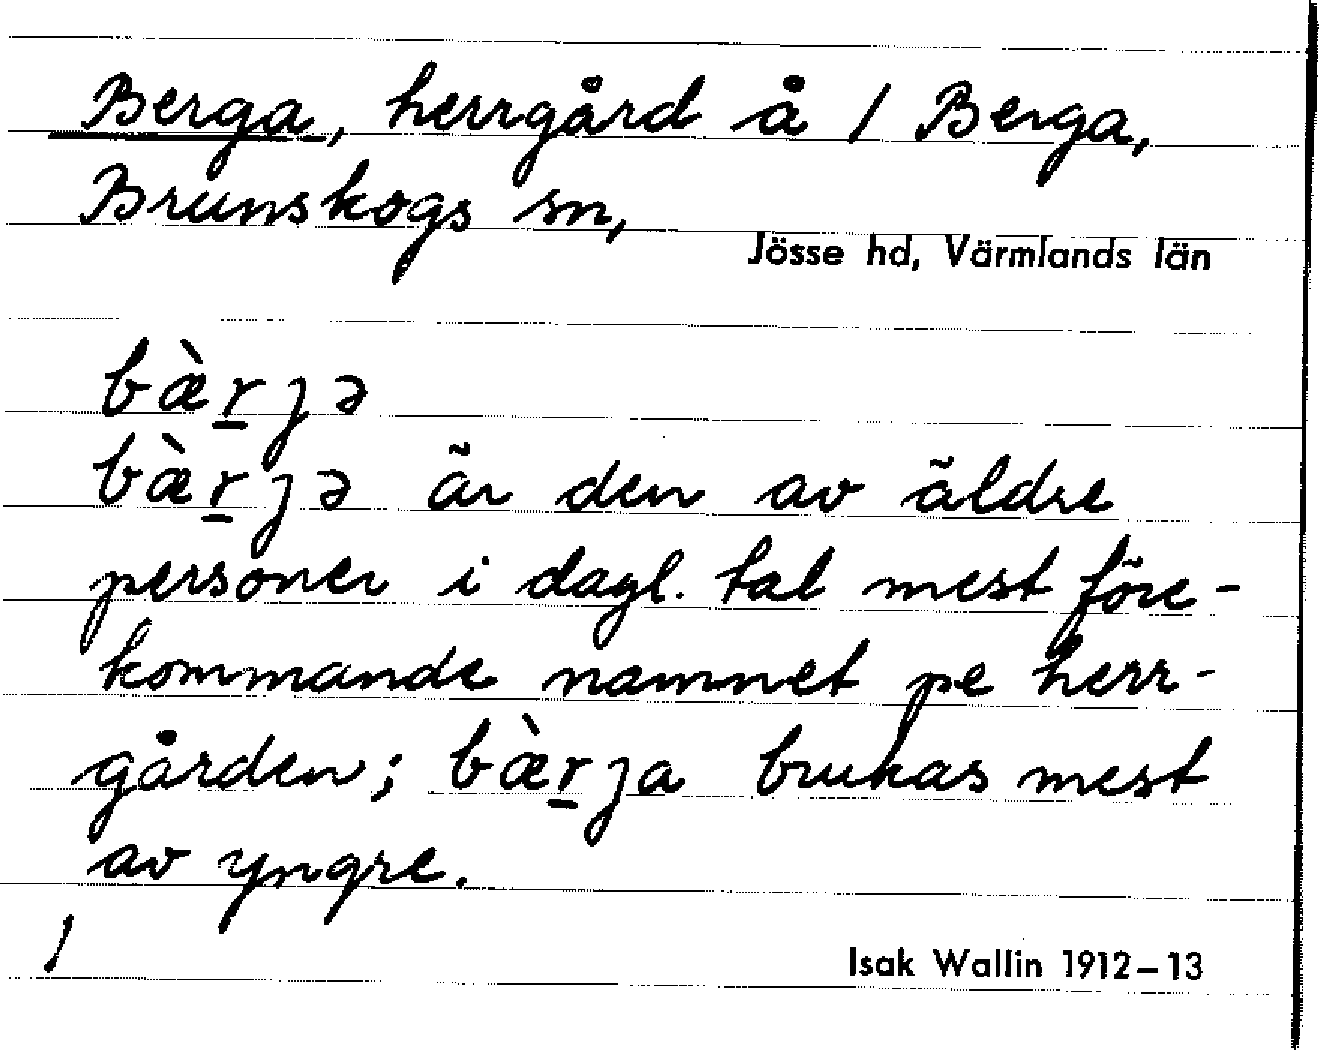 Berga, herrgård å 1 Berga,
Brunskogs sn,
Jösse hd, Värmlands län
bæ̀r̲jə
bæ̀r̲jə är den av äldre
personer i dagl. tal mest före-
kommande namnet pe herr-
gården; bæ̀r̲ja brukas mest
av yngre.
1
Isak Wallin 1912–13